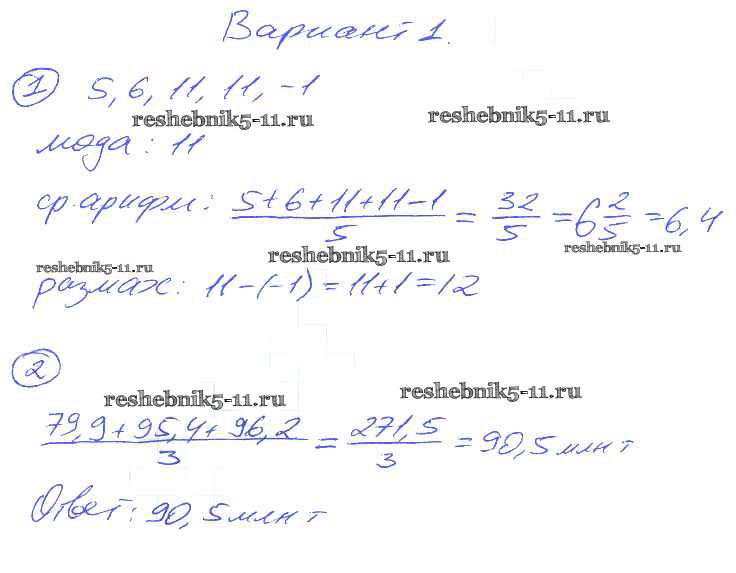 Вариант 1.
① 5, 6, 11, 11, -1
reshebnik5-11.ru reshebnik5-11.ru
мода: 11
ср. арифм: (5+6+11+11-1)/5 = 32/5 = 6 2/5 = 6,4
reshebnik5-11.ru reshebnik5-11.ru
reshebnik5-11.ru
размах: 11-(-1)=11+1=12
②
reshebnik5-11.ru reshebnik5-11.ru
(79,9+95,4+96,2)/3 = 271,5/3 = 90,5 млн т
Ответ: 90,5 млн т